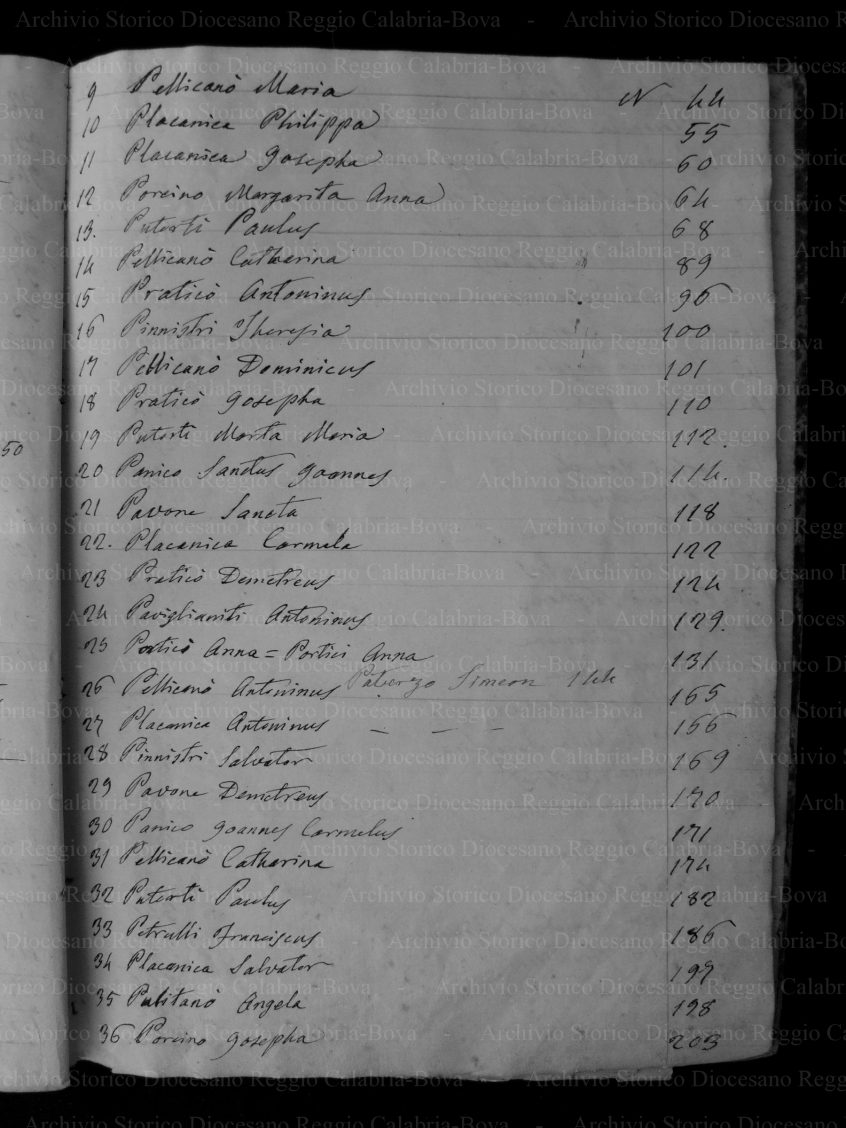 9 Pellicanò Maria N 44
10 Placanica Philippa 55
11 Placanica Josepha 60
12 Porcino Margarita Anna 64
13. Putortì Paulus 68
14 Pellicanò Catharina 89
15 Praticò Antoninus 96
16 Pinnistri Theresia 100
17 Pellicanò Dominicus 101
18 Praticò Josepha 110
19 Putortì Marta Maria 112.
20 Panico Sanctus Joannes 114.
21 Pavone Sancta 118
22. Placanica Carmela 122
23 Praticò Demetreus 124
24 Paviglianiti Antoninus 129.
25 Porticò Anna = Portici Anna 131
Simeon 144
26 Pellicanò Antoninus 165
27 Placanica Antoninus — — — 166
28 Pinnistri Salvator 169
29 Pavone Demetreus 170
30 Panico Joannes Carmelus 171
31 Pellicanò Catharina 174
32 Putortì Paulus 182
33 Petrulli Franciscus 186
34 Placanica Salvator 197
35 Pulitanò Angela 198
36 Porcino Josepha 203
50
Archivio Storico Diocesano Reggio Calabria-Bova